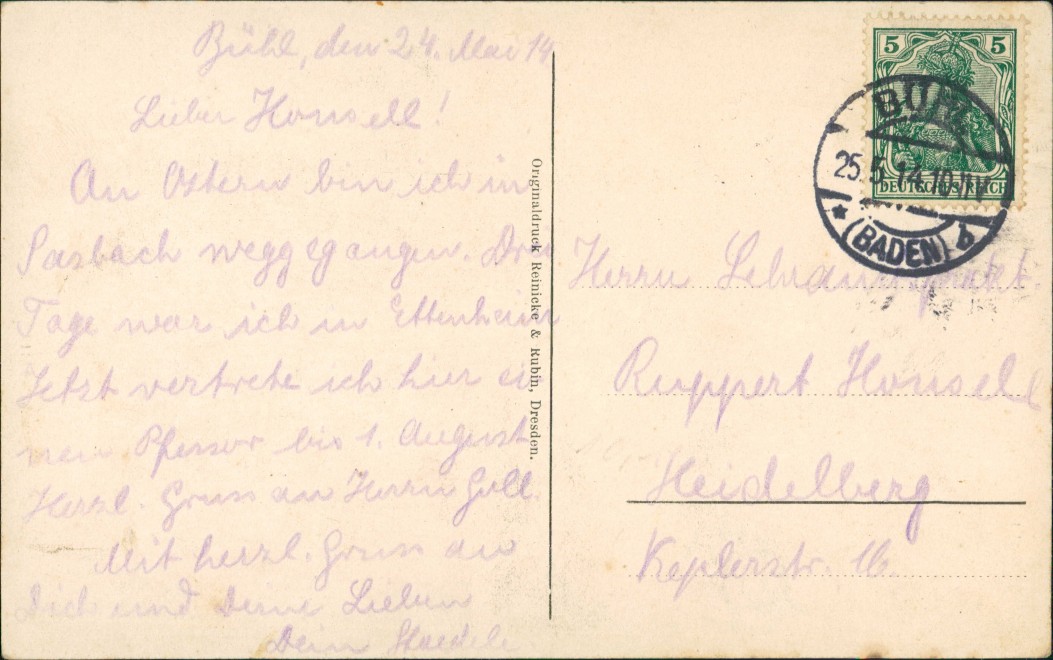 Bühl, den 24. Mai 14
Lieber Honsell!
An Ostern bin ich in
Sasbach weggegangen. Drei
Tage war ich in Ettenheim
Jetzt vertrete ich hier ei
nen Pfessor bis 1. August
Herzl. Gruss an Herrn Göll.
Mit herzl. Gruss an
Dich und Deine Lieben
Dein
Originaldruck Reinicke & Rubin, Dresden.
5 5
DEUTSCHES REICH
BÜHL
25.5.14.10-11V
* (BADEN) b
Herrn Lehramtsprakt.
Ruppert Honsell
Heidelberg
Keplerstr. 16.